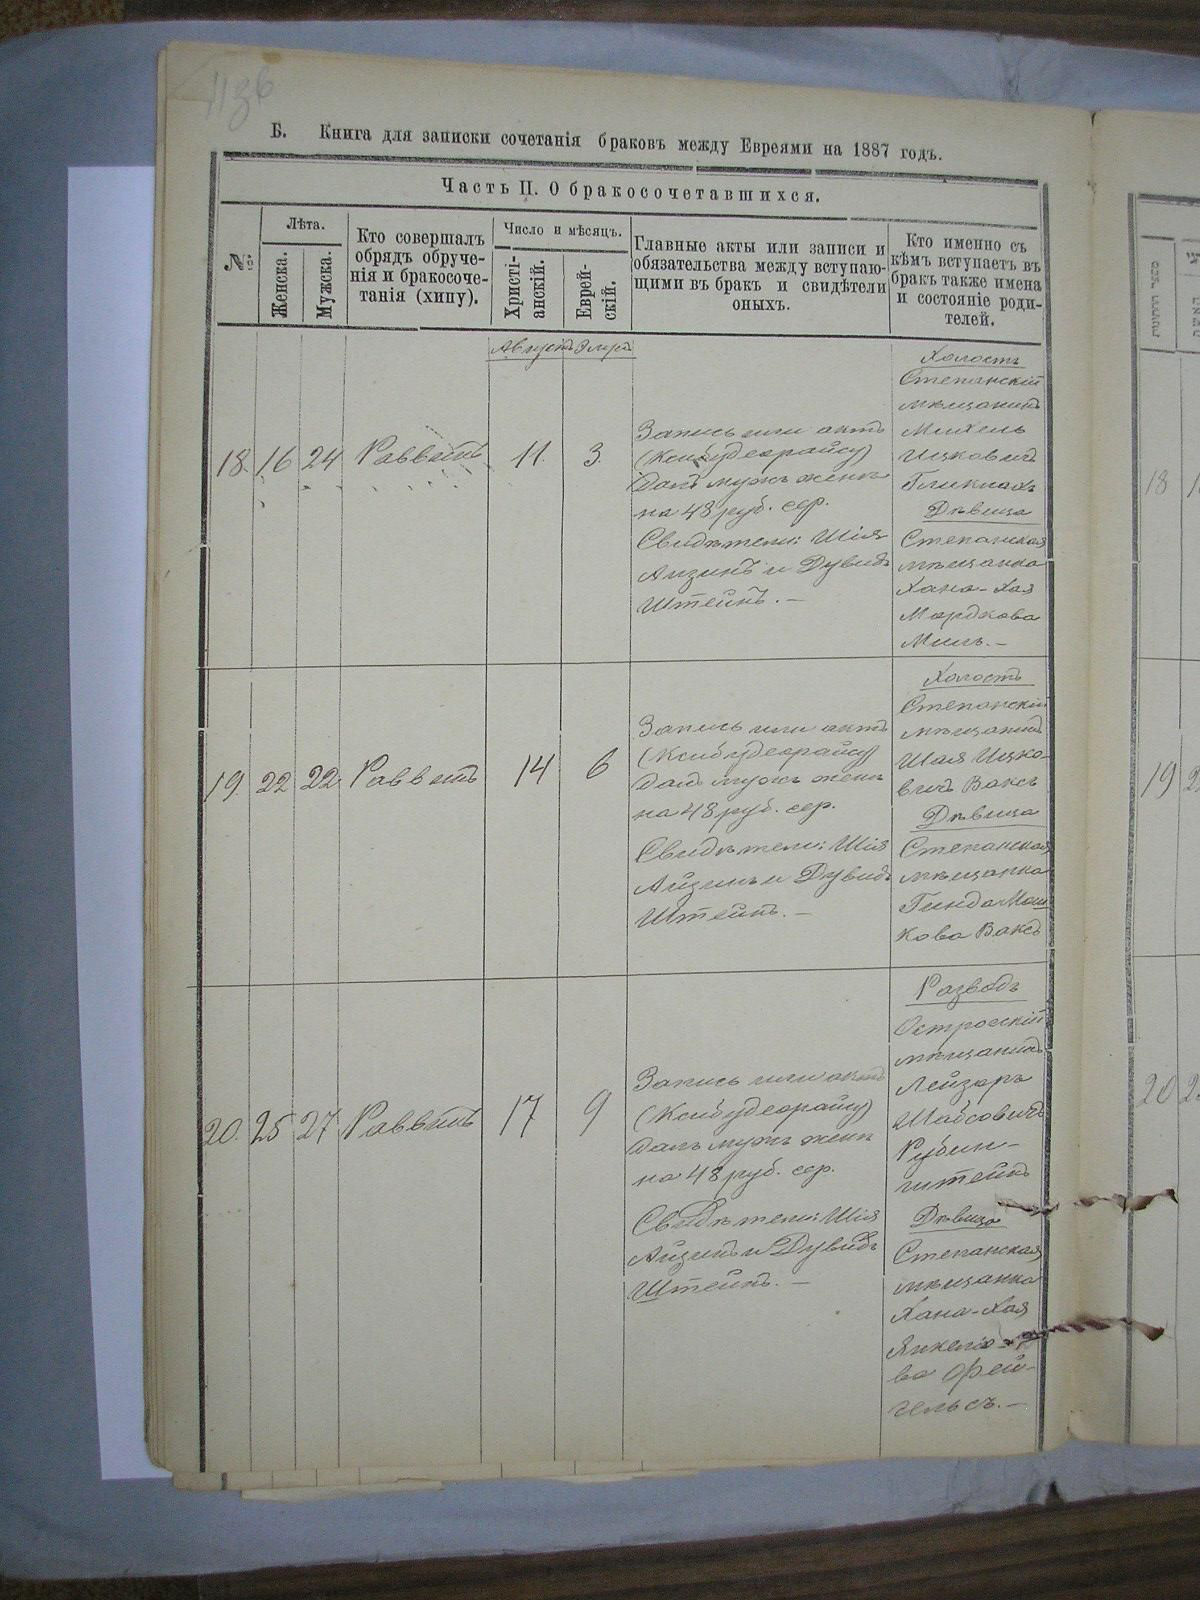 Б. Книга для записки сочетанія браковъ между Евреями на 1887 годъ.
Часть II. О бракосочетавшихся.
№
Лѣта.
Женска.
Мужска.
Кто совершалъ
обрядъ обруче-
нія и бракосоче-
танія (хипу).
Число и мѣсяцъ.
Христі-
анскій.
Еврей-
скій.
Главные акты или записи и
обязательства между вступаю-
щими въ бракъ и свидѣтели
оныхъ.
Кто именно съ
кѣмъ вступаетъ въ
бракъ также имена
и состояніе роди-
телей.
Августъ Элулъ
18. 16 24 Раввинъ 11. 3.
Запись или актъ
(Ксибудеорайсу)
далъ мужъ женѣ
на 48 руб. сер.
Свидѣтели: Шія
Айзинъ и Дувидъ
Штейнъ. —
Холостъ
Степанскій
мѣщанинъ
Михель
Ицковичъ
Гликмахъ
Дѣвица
Степанская
мѣщанка
Хана-Хая
Мордкова
Миль. —
19. 22 22 Раввинъ 14 6
Запись или актъ
(Ксибудеорайсу)
далъ мужъ женѣ
на 48 руб. сер.
Свидѣтели: Шія
Айзинъ и Дувидъ
Штейнъ. —
Холостъ
Степанскій
мѣщанинъ
Шая Ицко-
вичъ Ваксъ
Дѣвица
Степанская
мѣщанка
Гинда Мош
кова Ваксъ
20. 25 27 Раввинъ 17 9
Запись или актъ
(Ксибудеорайсу)
далъ мужъ женѣ
на 48 руб. сер.
Свидѣтели: Шія
Айзинъ и Дувидъ
Штейнъ. —
Разводъ
Острожскій
мѣщанинъ
Лейзоръ
Шабсовичъ
Рубин-
штейнъ
Дѣвица
Степанская
мѣщанка
Хана-Хая
Янкело-
ва Фей-
гельсъ. —
18
19
20